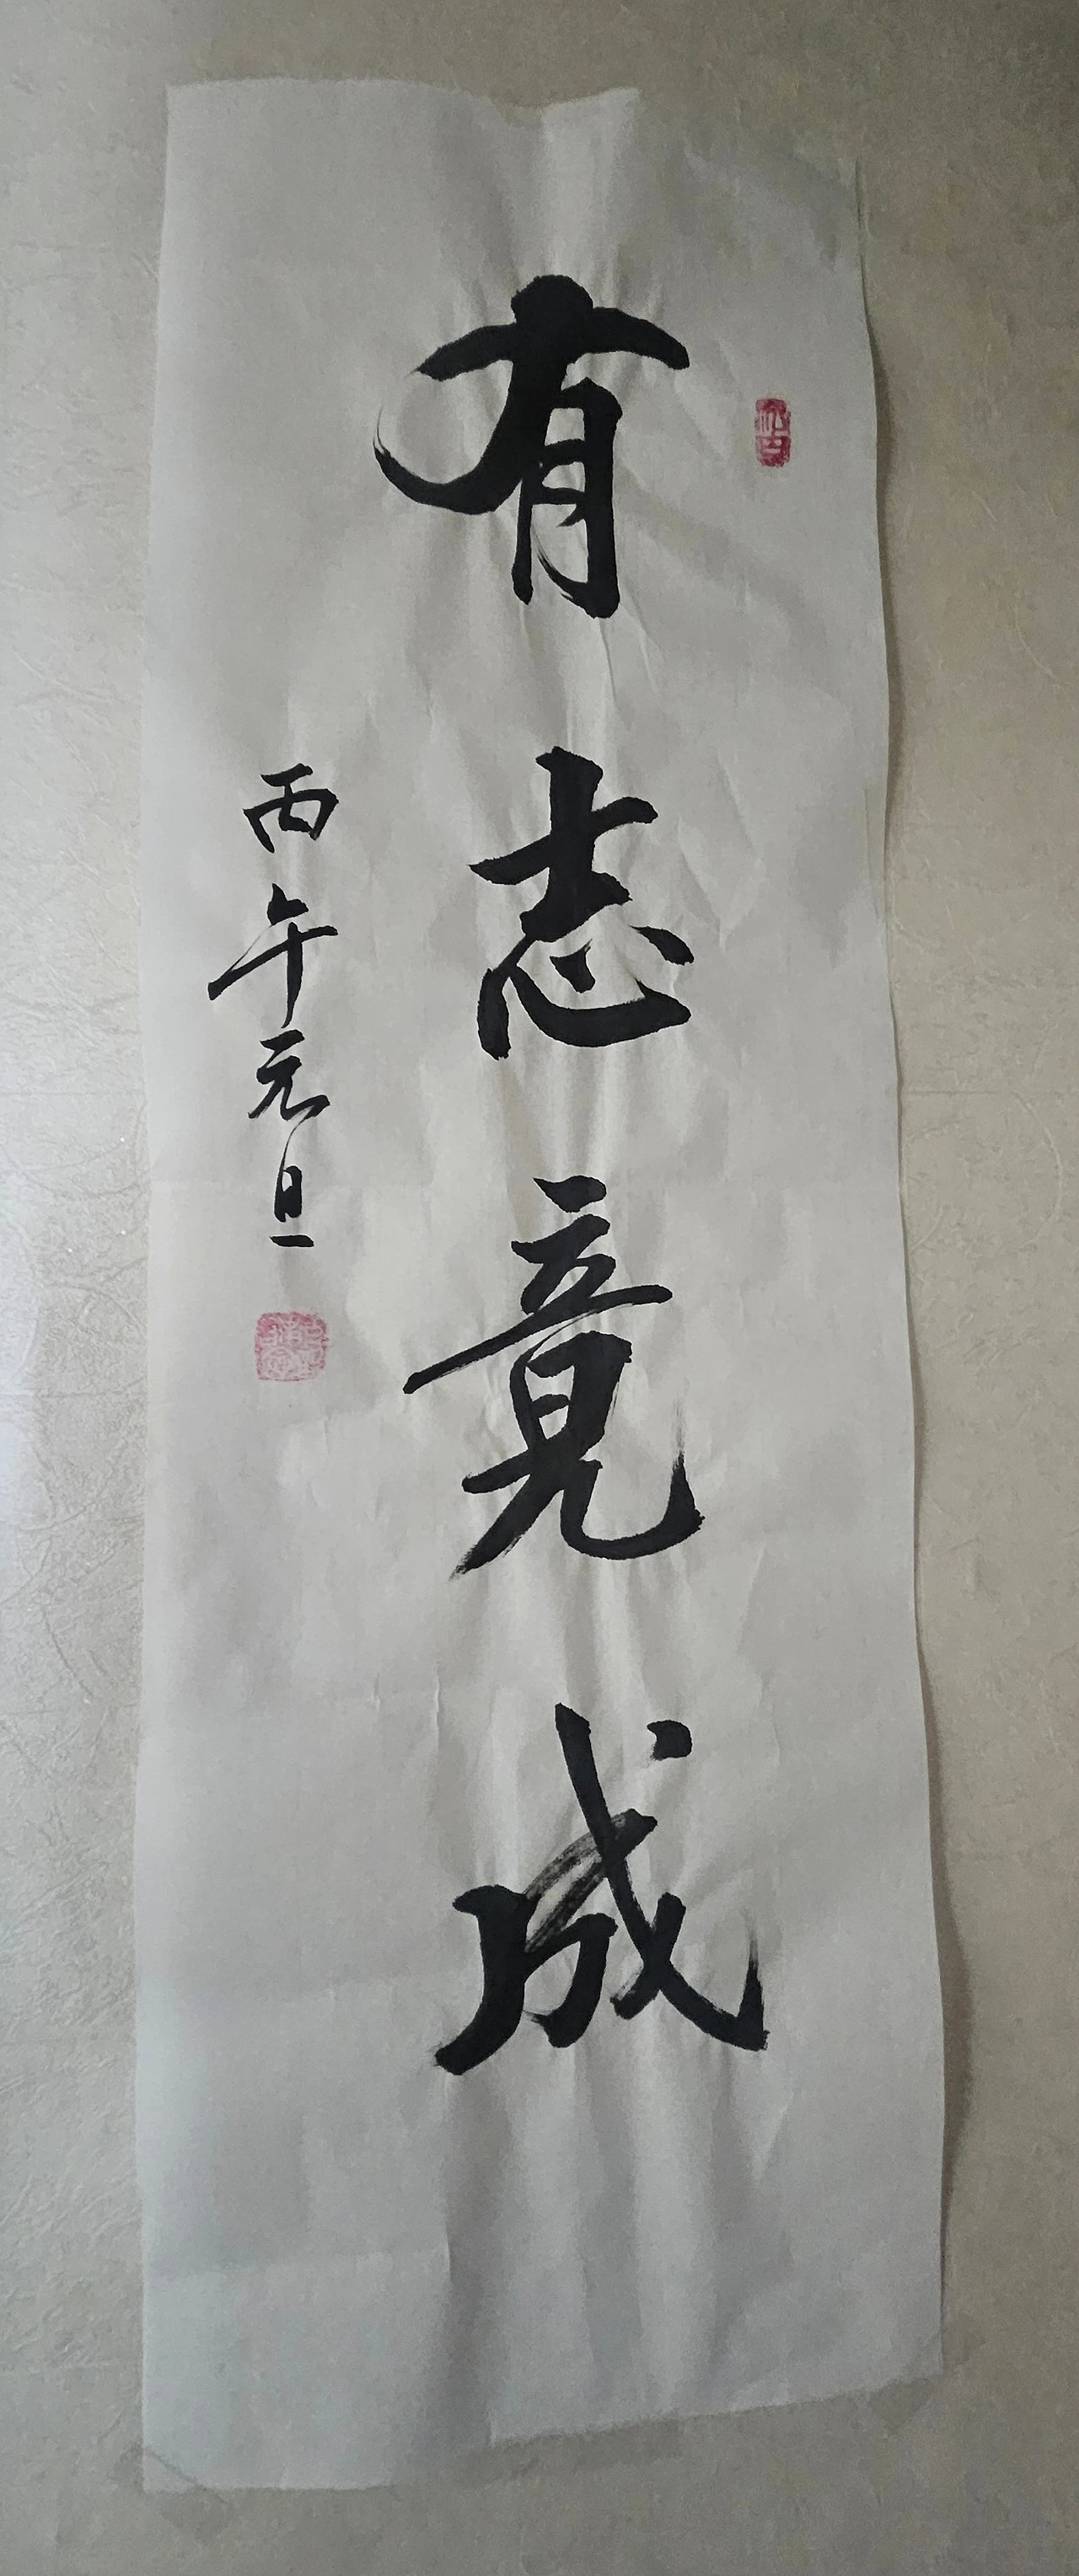 有志竟成
丙午元旦